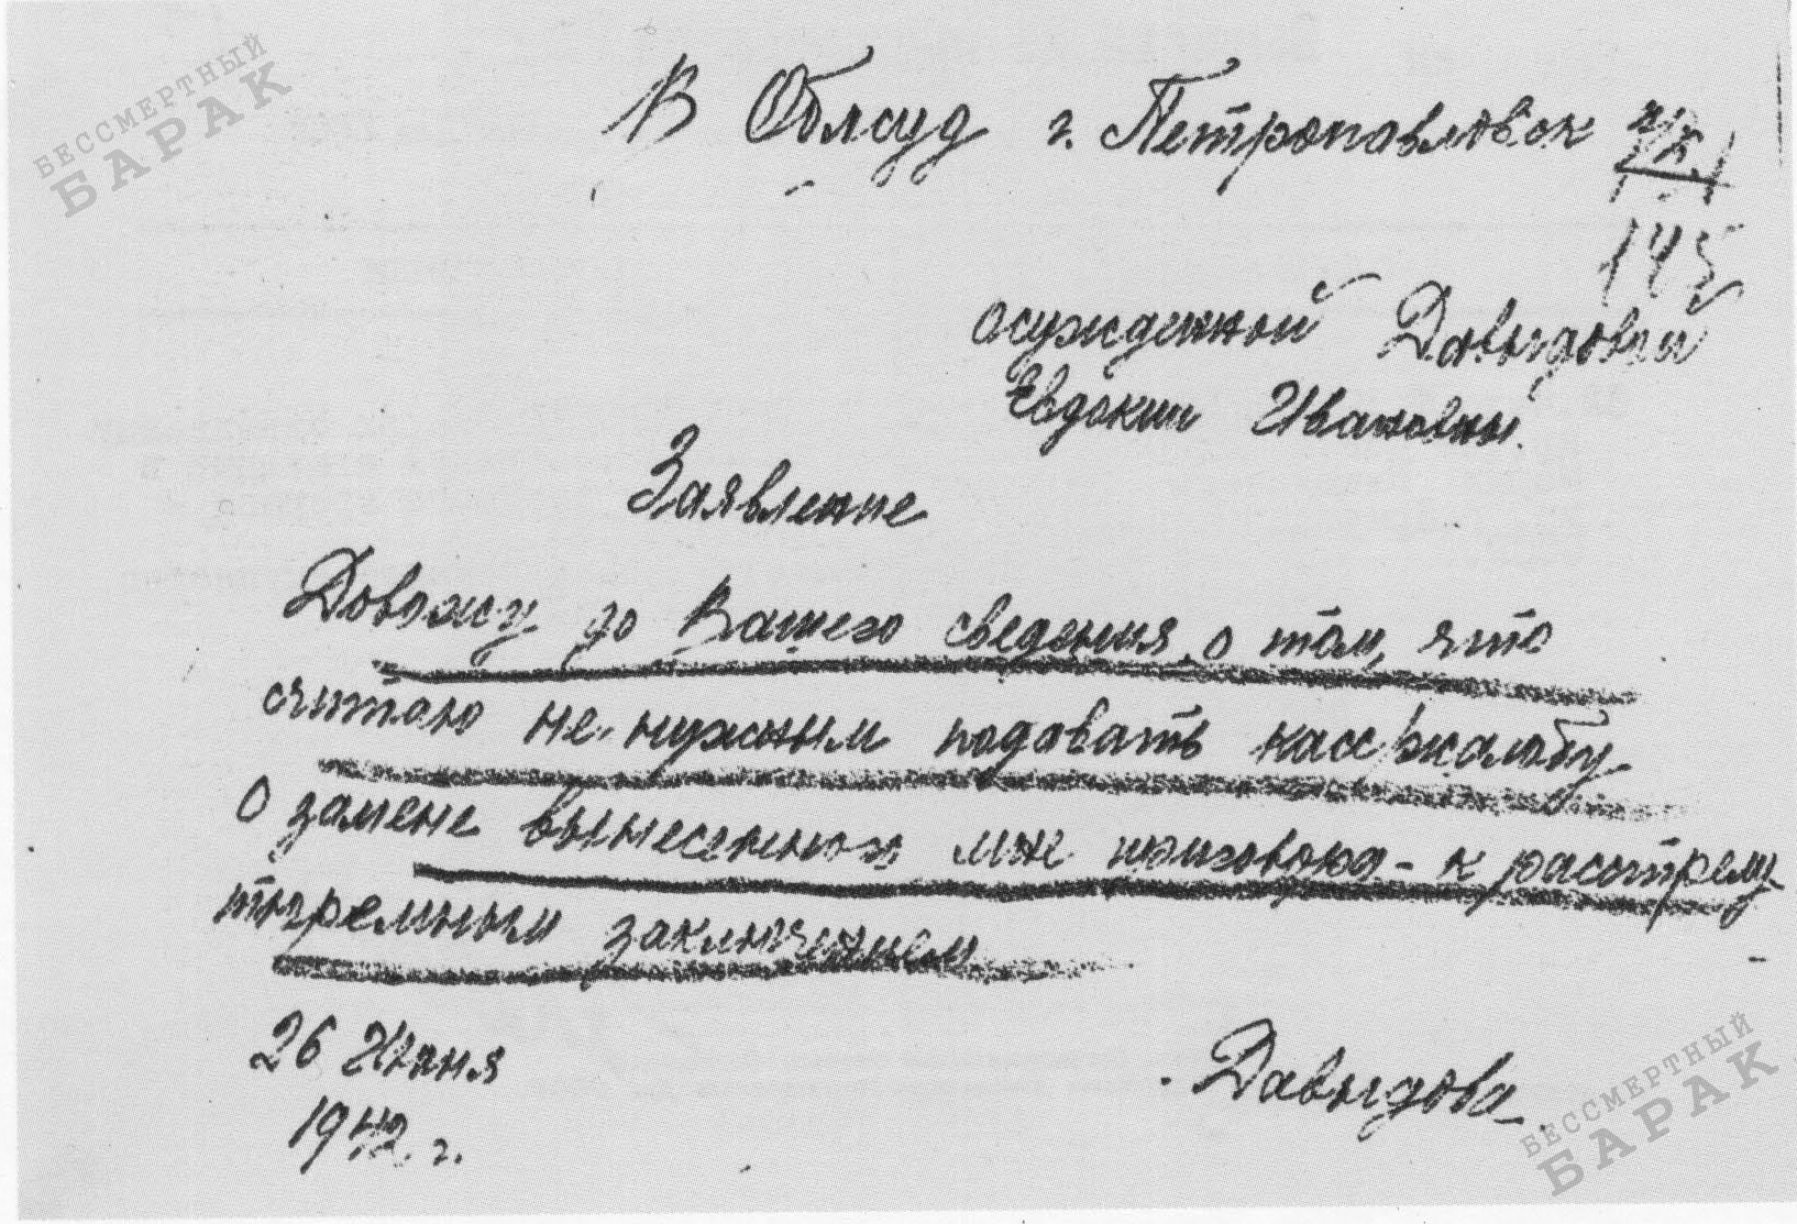 БЕССМЕРТНЫЙ
БАРАК
В Облсуд г. Петропавловск
145
осужденной Давыдовой
Евдокии Ивановны.
Заявление
Довожу до Вашего сведения о том, что
считаю не нужным подавать касс/жалобу
о замене вынесенного мне приговора - к расстрелу
тюремным заключением
26 Июня
1942. г.
Давыдова
БЕССМЕРТНЫЙ
БАРАК